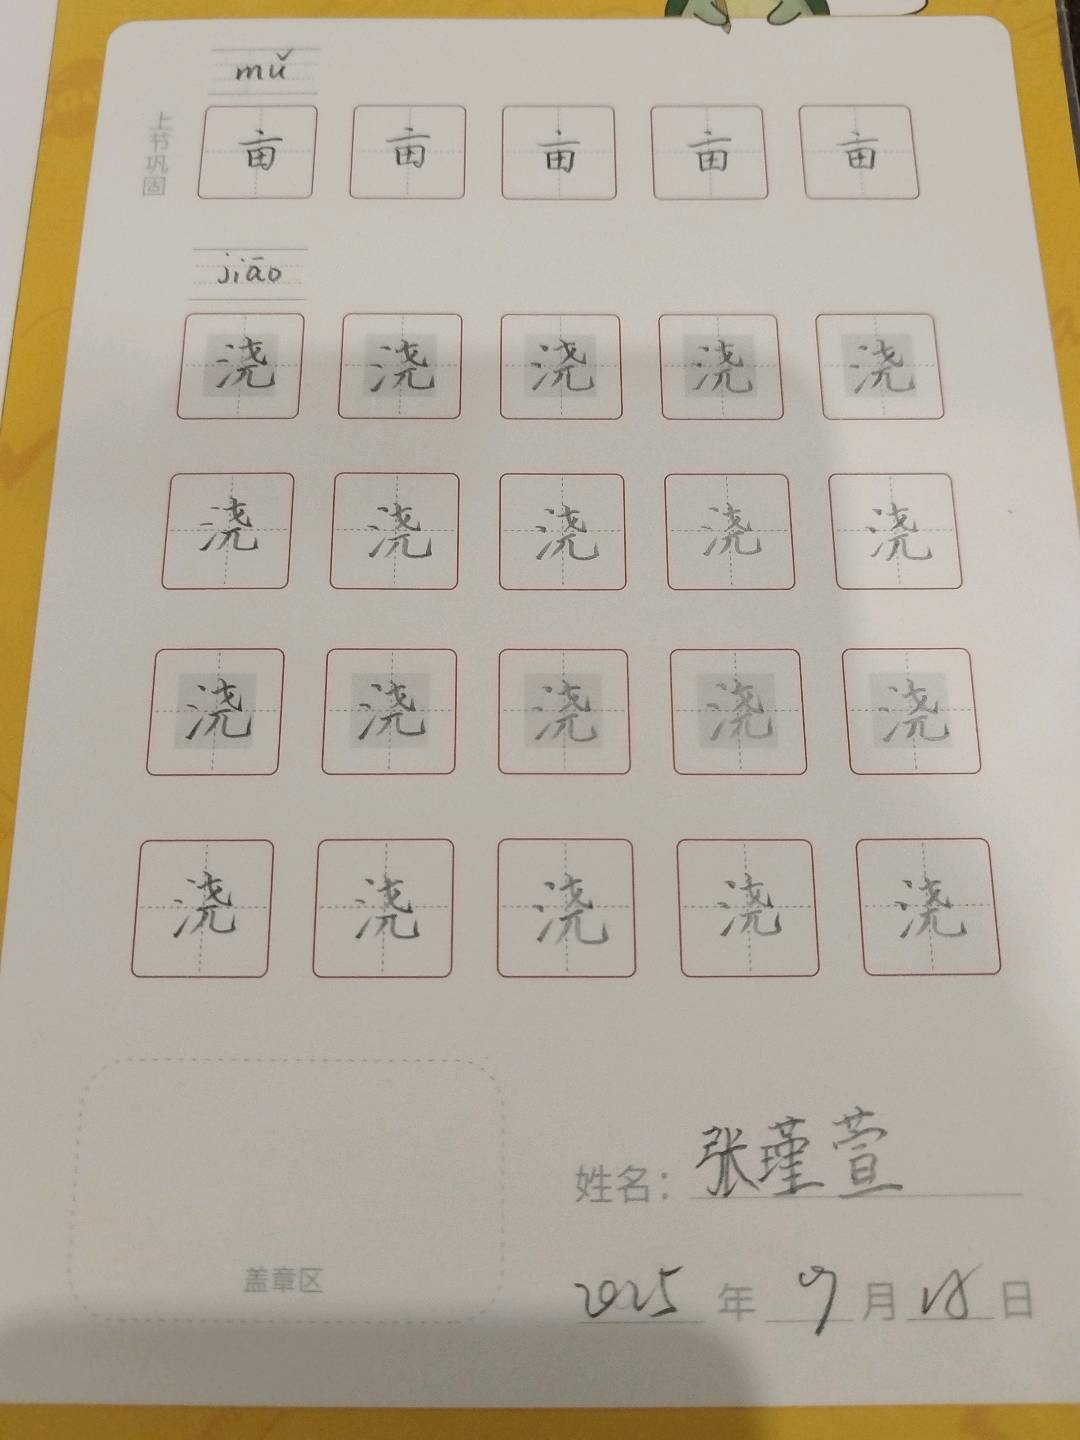 mǔ
上节巩固
亩 亩 亩 亩 亩
jiāo
浇 浇 浇 浇 浇
浇 浇 浇 浇 浇
浇 浇 浇 浇 浇
浇 浇 浇 浇 浇
姓名：张瑾萱
盖章区
2025 年 9 月 18 日